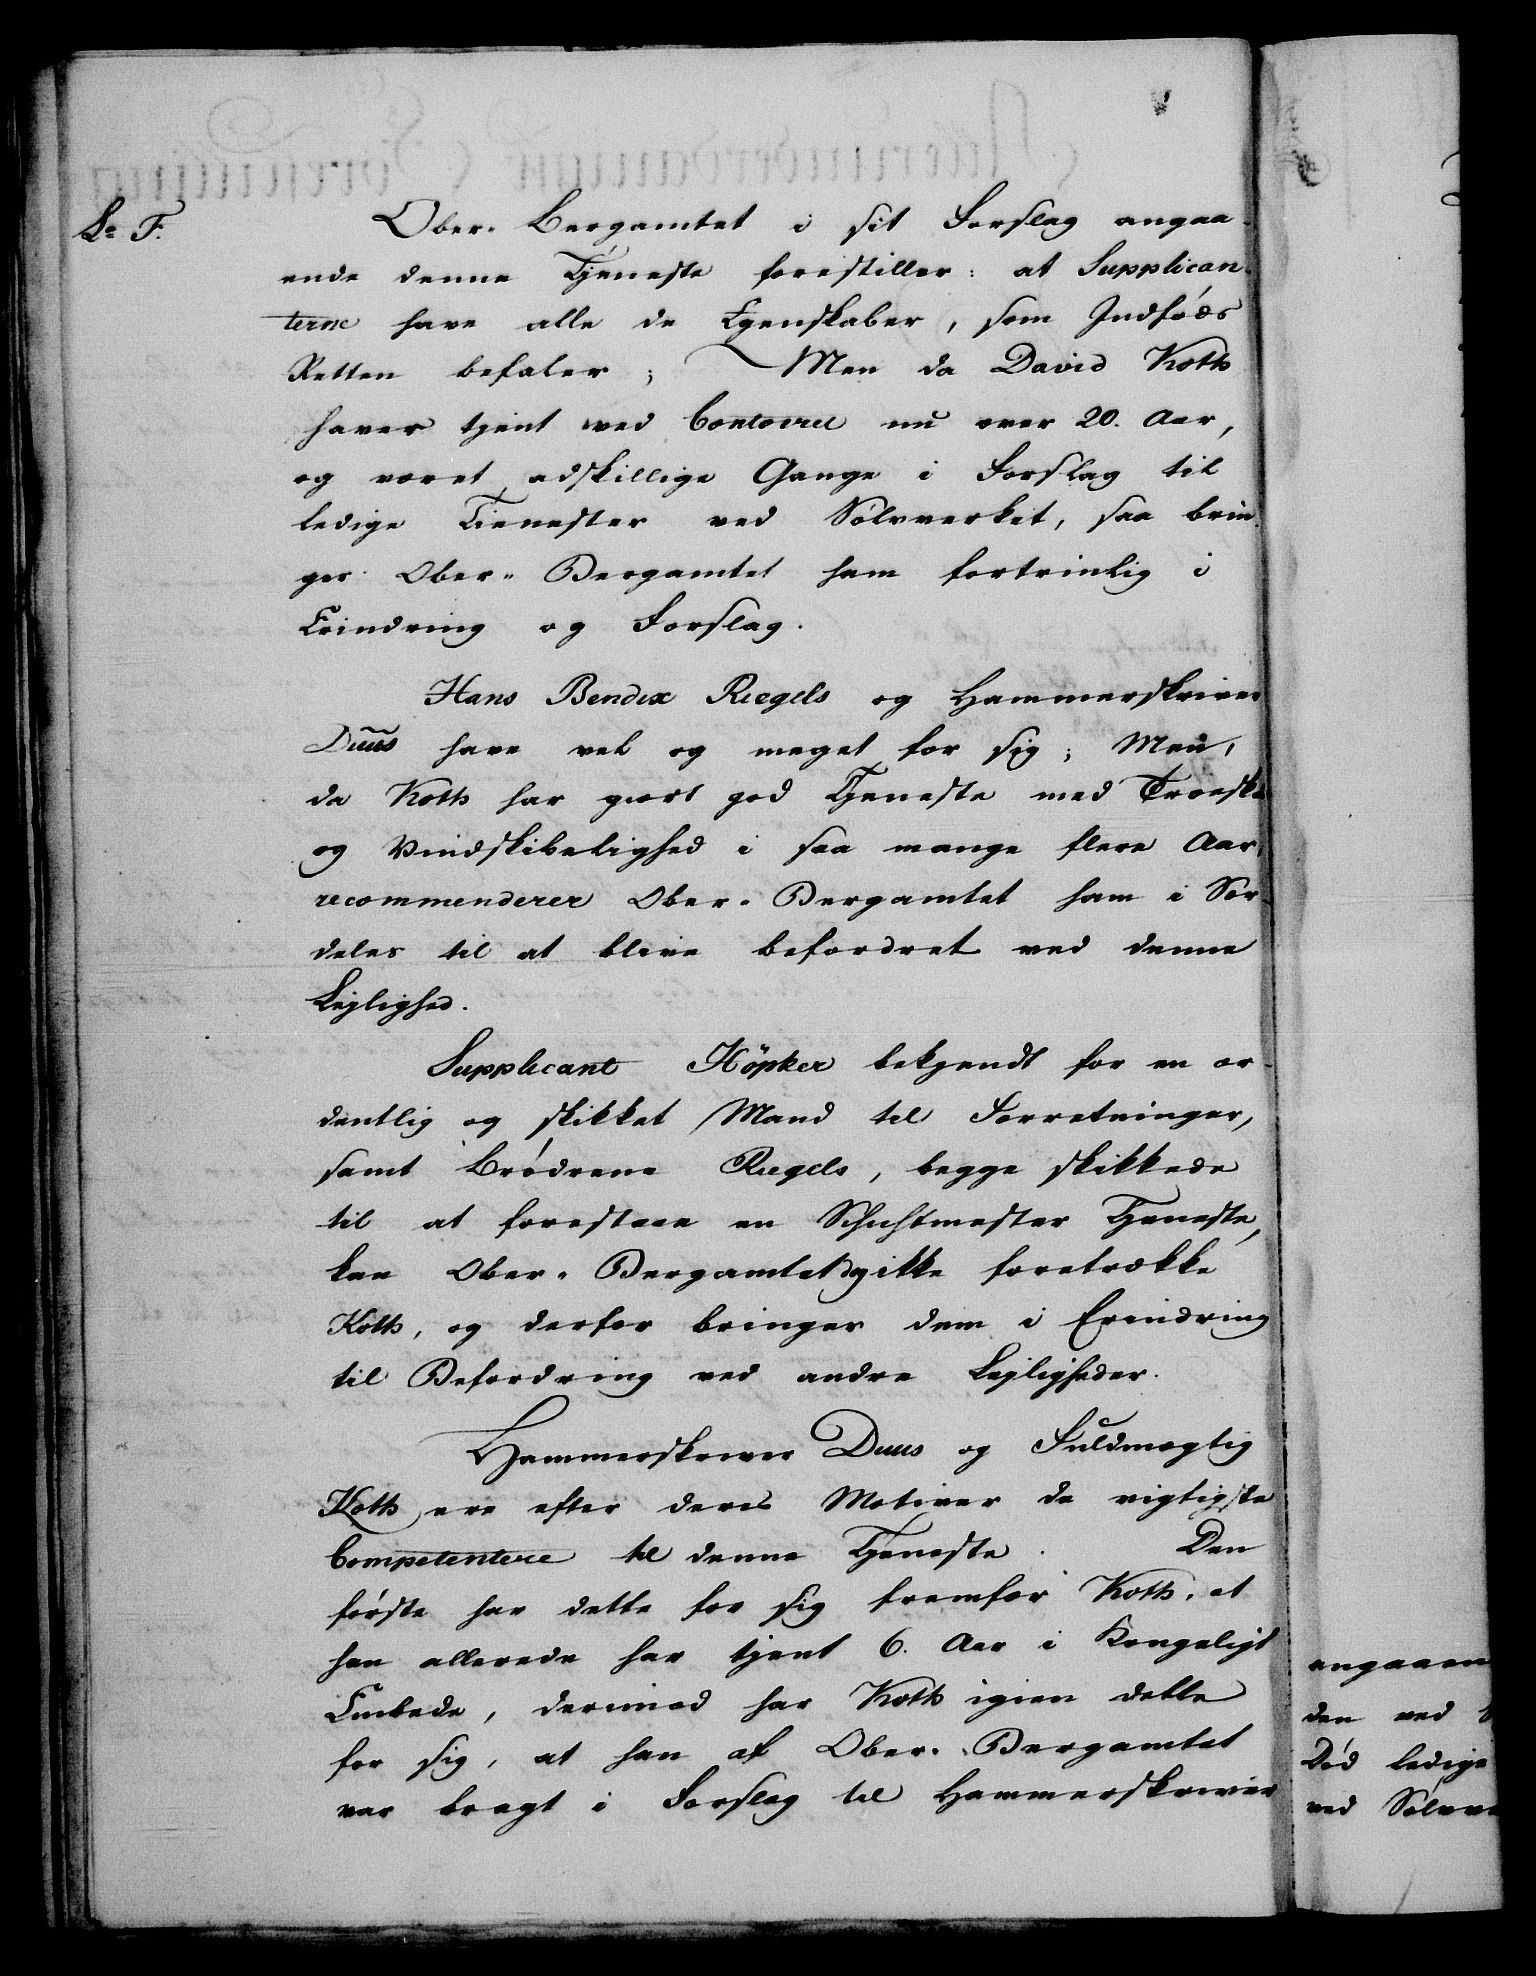 L<sup>a</sup> F.
Ober-Bergamtet i sit Forslag angaa-
ende denne Tjeneste forestiller: at Supplican-
terne have alle de Egenskaber, som Indføds
Retten befaler; Men da David Koth
haver tjent ved Contoiret nu over 20. Aar,
og været adskillige Gange i Forslag til
ledige Tienester ved Sølvverket, saa brin-
ger Ober-Bergamtet ham fortrinlig i
Erindring og Forslag.
Hans Bendix Riegels og Hammerskriver
Duus have vel og meget for sig; Men,
da Koth har giort god Tjeneste med Troeskab
og Vindskibelighed i saa mange flere Aar,
recommenderer Ober-Bergamtet ham i Sær-
deles til at blive befordret ved denne
Lejlighed.
Supplicant Höpker bekjendt for en or-
dentlig og skikket Mand til Forretninger,
samt Brødrene Riegels, begge skikkede
til at forestaae en Schichtmester Tjeneste,
kan Ober-Bergamtet ikke foretrække
Koth, og derfor bringer dem i Erindring
til Befordring ved andre Lejligheder.
Hammerskriver Duus og Fuldmægtig
Koth ere efter deres Motiver de vigtigste
Competentere til denne Tjeneste. Den
første har dette for sig fremfor Koth, at
han allerede har tjent 6. Aar i Kongeligt
Embede, derimod har Koth igien dette
for sig, at han af Ober-Bergamtet
var bragt i Forslag til Hammerskriver
angaaen
den ved
Død ledige
ved Sølvve